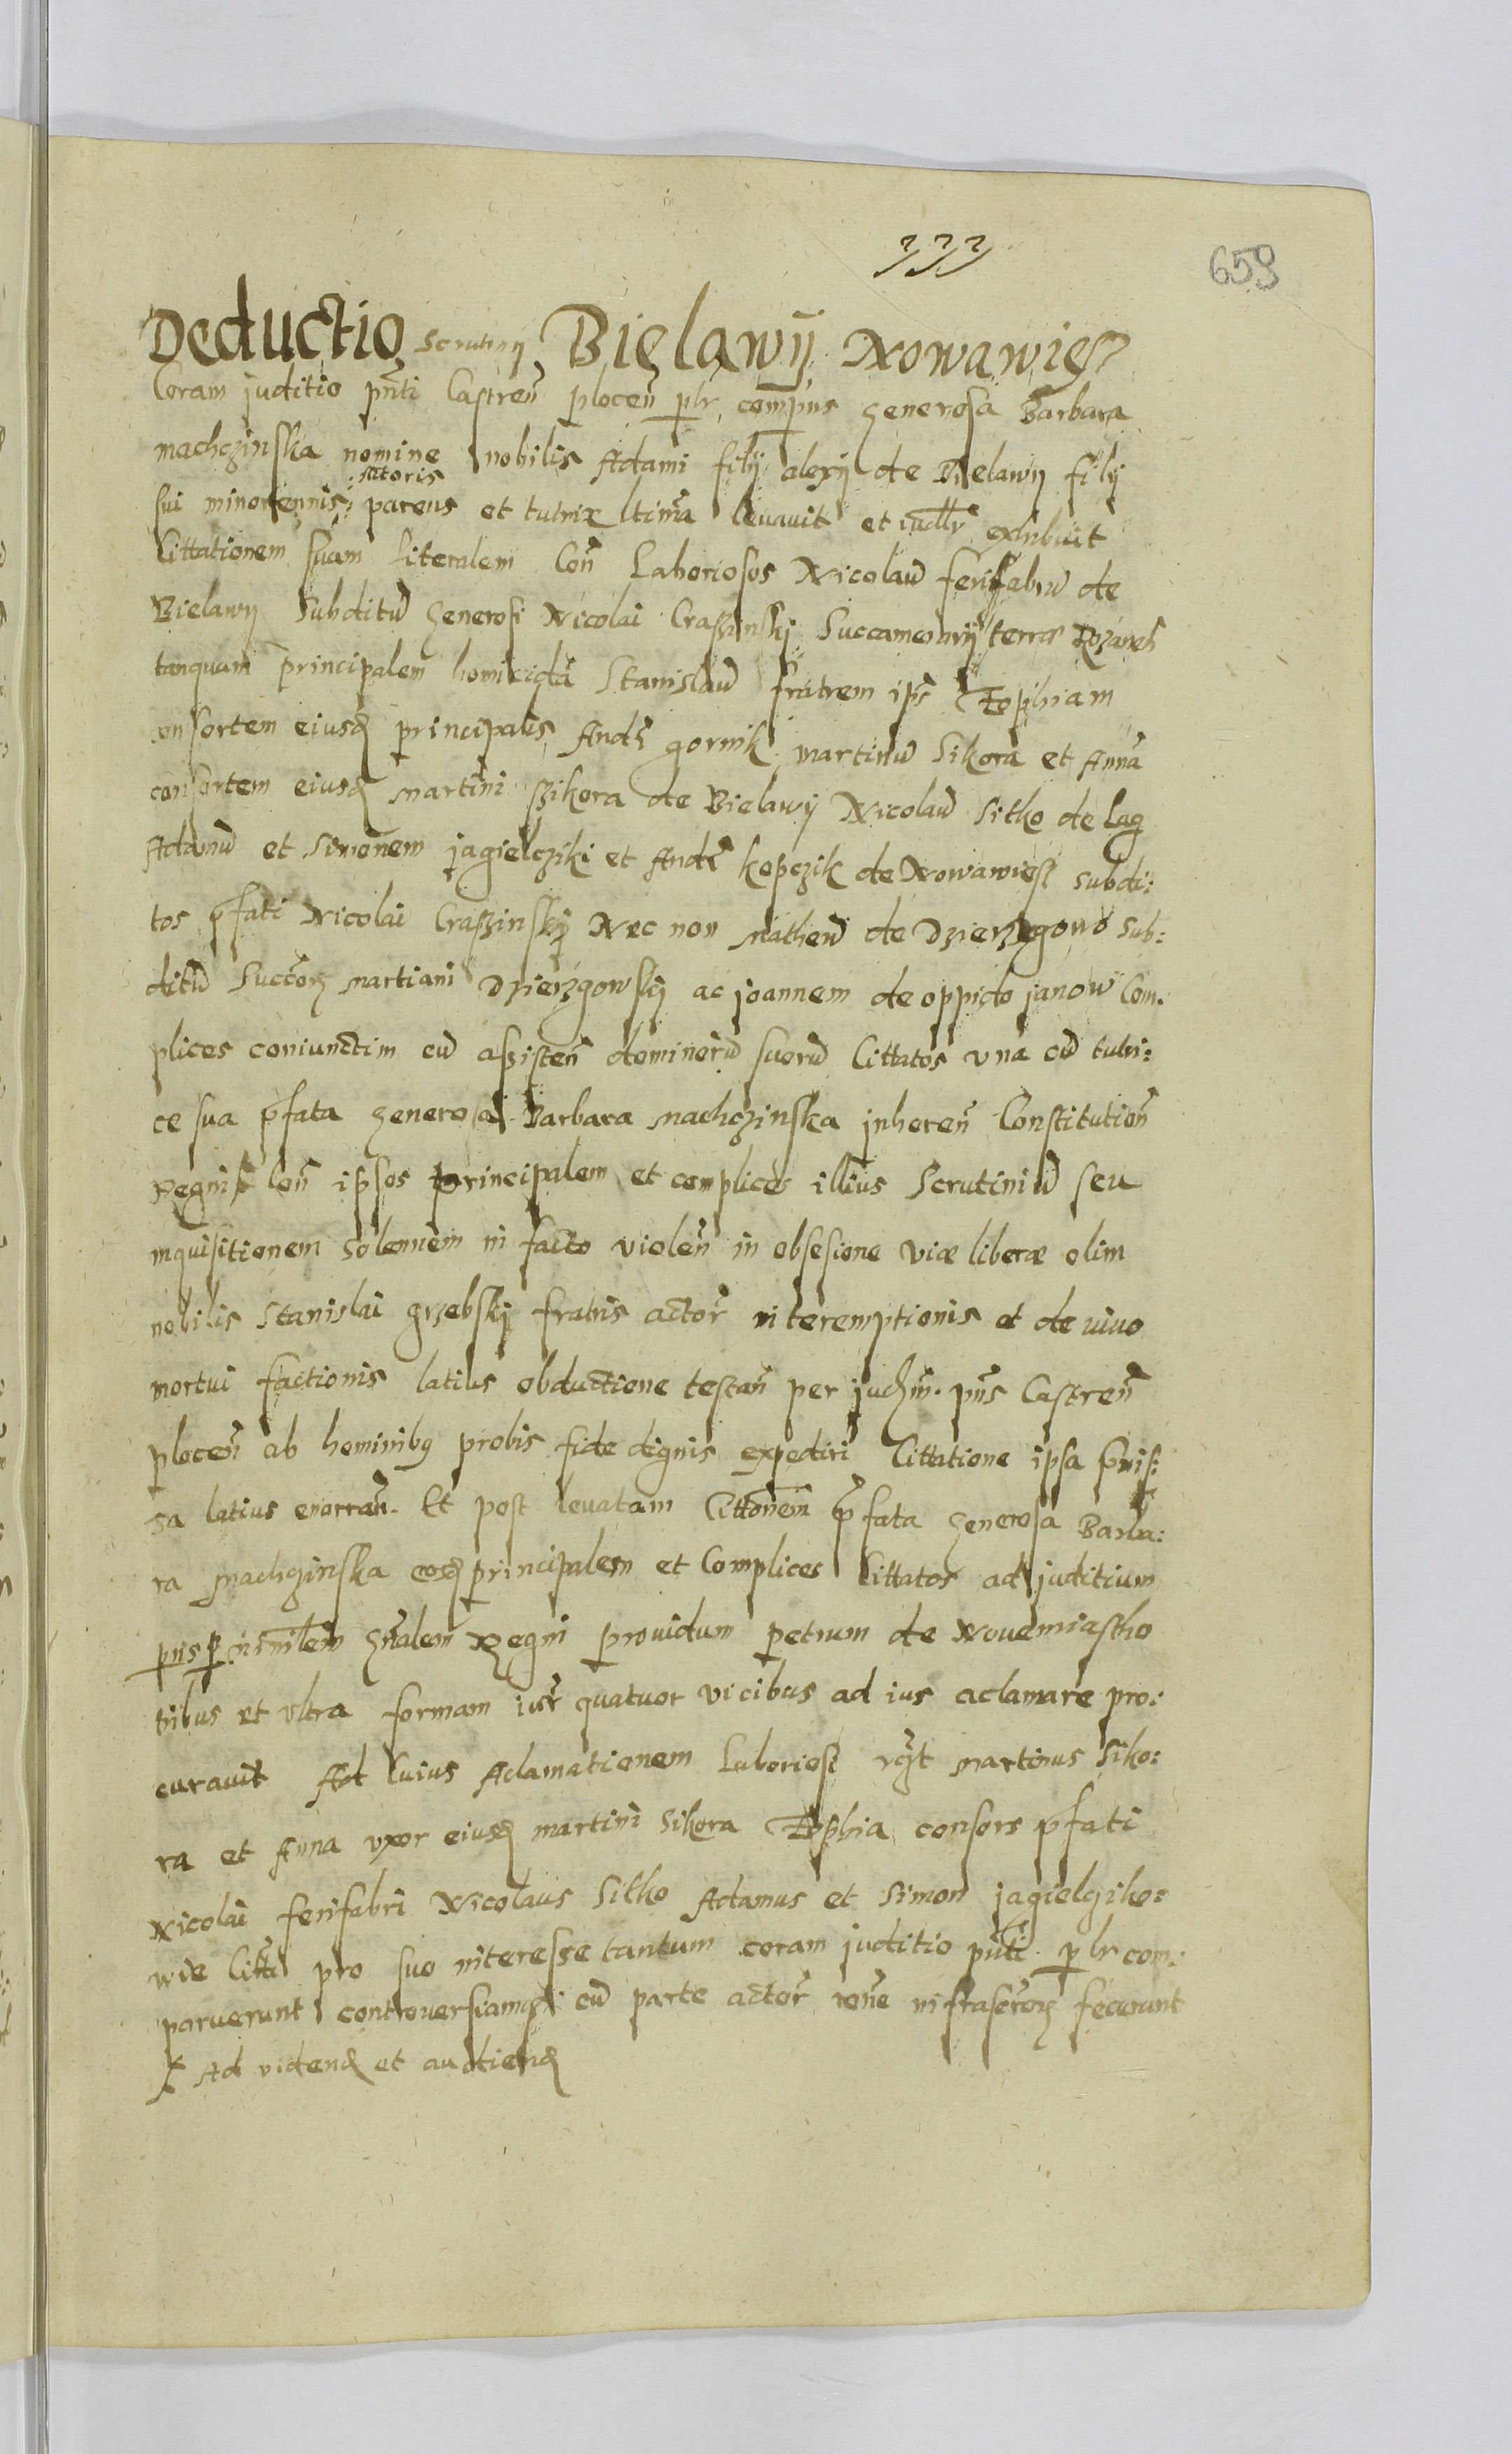 333
659
Deductio Scrutinij Bielawij Nowawiesz
Coram juditio pñti Castreñ ploceñ plr compñs generosa Barbara
machczinska nomine nobilis Adami filij alexij de Bielawij filij
Actoris
sui minorennis parens et tutrix ltima leuauit et exhibuit
Cittationem suam literalem Coñ Laboriosos Nicolaū ferifabrū de
Bielawij Subditū generosi Nicolai Craszinskj Succamerarij terræ Rozaneñ
tanquam principalem homicidā Stanislaū fratrem ipš Zophiam
consortem eiusd principalis Andr̃ gornik martinū Sikora et Annā
consortem eiusd martini szikora de Bielawij Nicolaū Sitko de lag
Adamū et Simonem jagielcziki et Andr̃ kopczik de Nowawiesz subdi:
tos pfati Nicolai Craszinskij Nec non Matheū de Dzierzgowo Sub:
ditū Succorz martiani Dzierzgowskj ac joannem de oppido janow Com.
plices coniunctim cū assisteñ dominorū suorū Cittatos vna cū tutri:
ce sua pfata generosa Barbara machczinska jnhereñ Constitutioñ
Regni Coñ ipsos principalem et complices illius Scrutiniū seu
inquisitionem solennem in facto violeñ in obsesione viæ liberæ olim
nobilis Stanislai grzebskj fratris actor̃ interemptionis et de viuo
mortui factionis latius obductione testañ per judm̃. pñs Castreñ
ploceñ ab hominibq probis fide dignis expediri Cittatione ipsa
sa latius enarrañ. Et post leuatam Cittonem pfata generosa Barba:
ra machczinska eosd principalem et Complices Cittatos ad juditium
pñs p ministlem gñalem Regni prouidum petrum de Nouemiastho
tribus et vltra formam iur̃ quatuor vicibus ad ius aclamare pro:
curauit Ad Cuius Aclamationem Laboriosi martinus Siko:
ra et Anna vxor eiusd martini Sikora Zophia consors pfati
Nicolai ferifabri Nicolaus Sitko Adamus et Simon jagielcziko:
wie Citti pro suo interesse tantum coram juditio pñti plr com:
paruerunt controuersiamq cū parte actor̃ roñe infrascr̃orz fecerunt
X Ad videnđ et audienđ